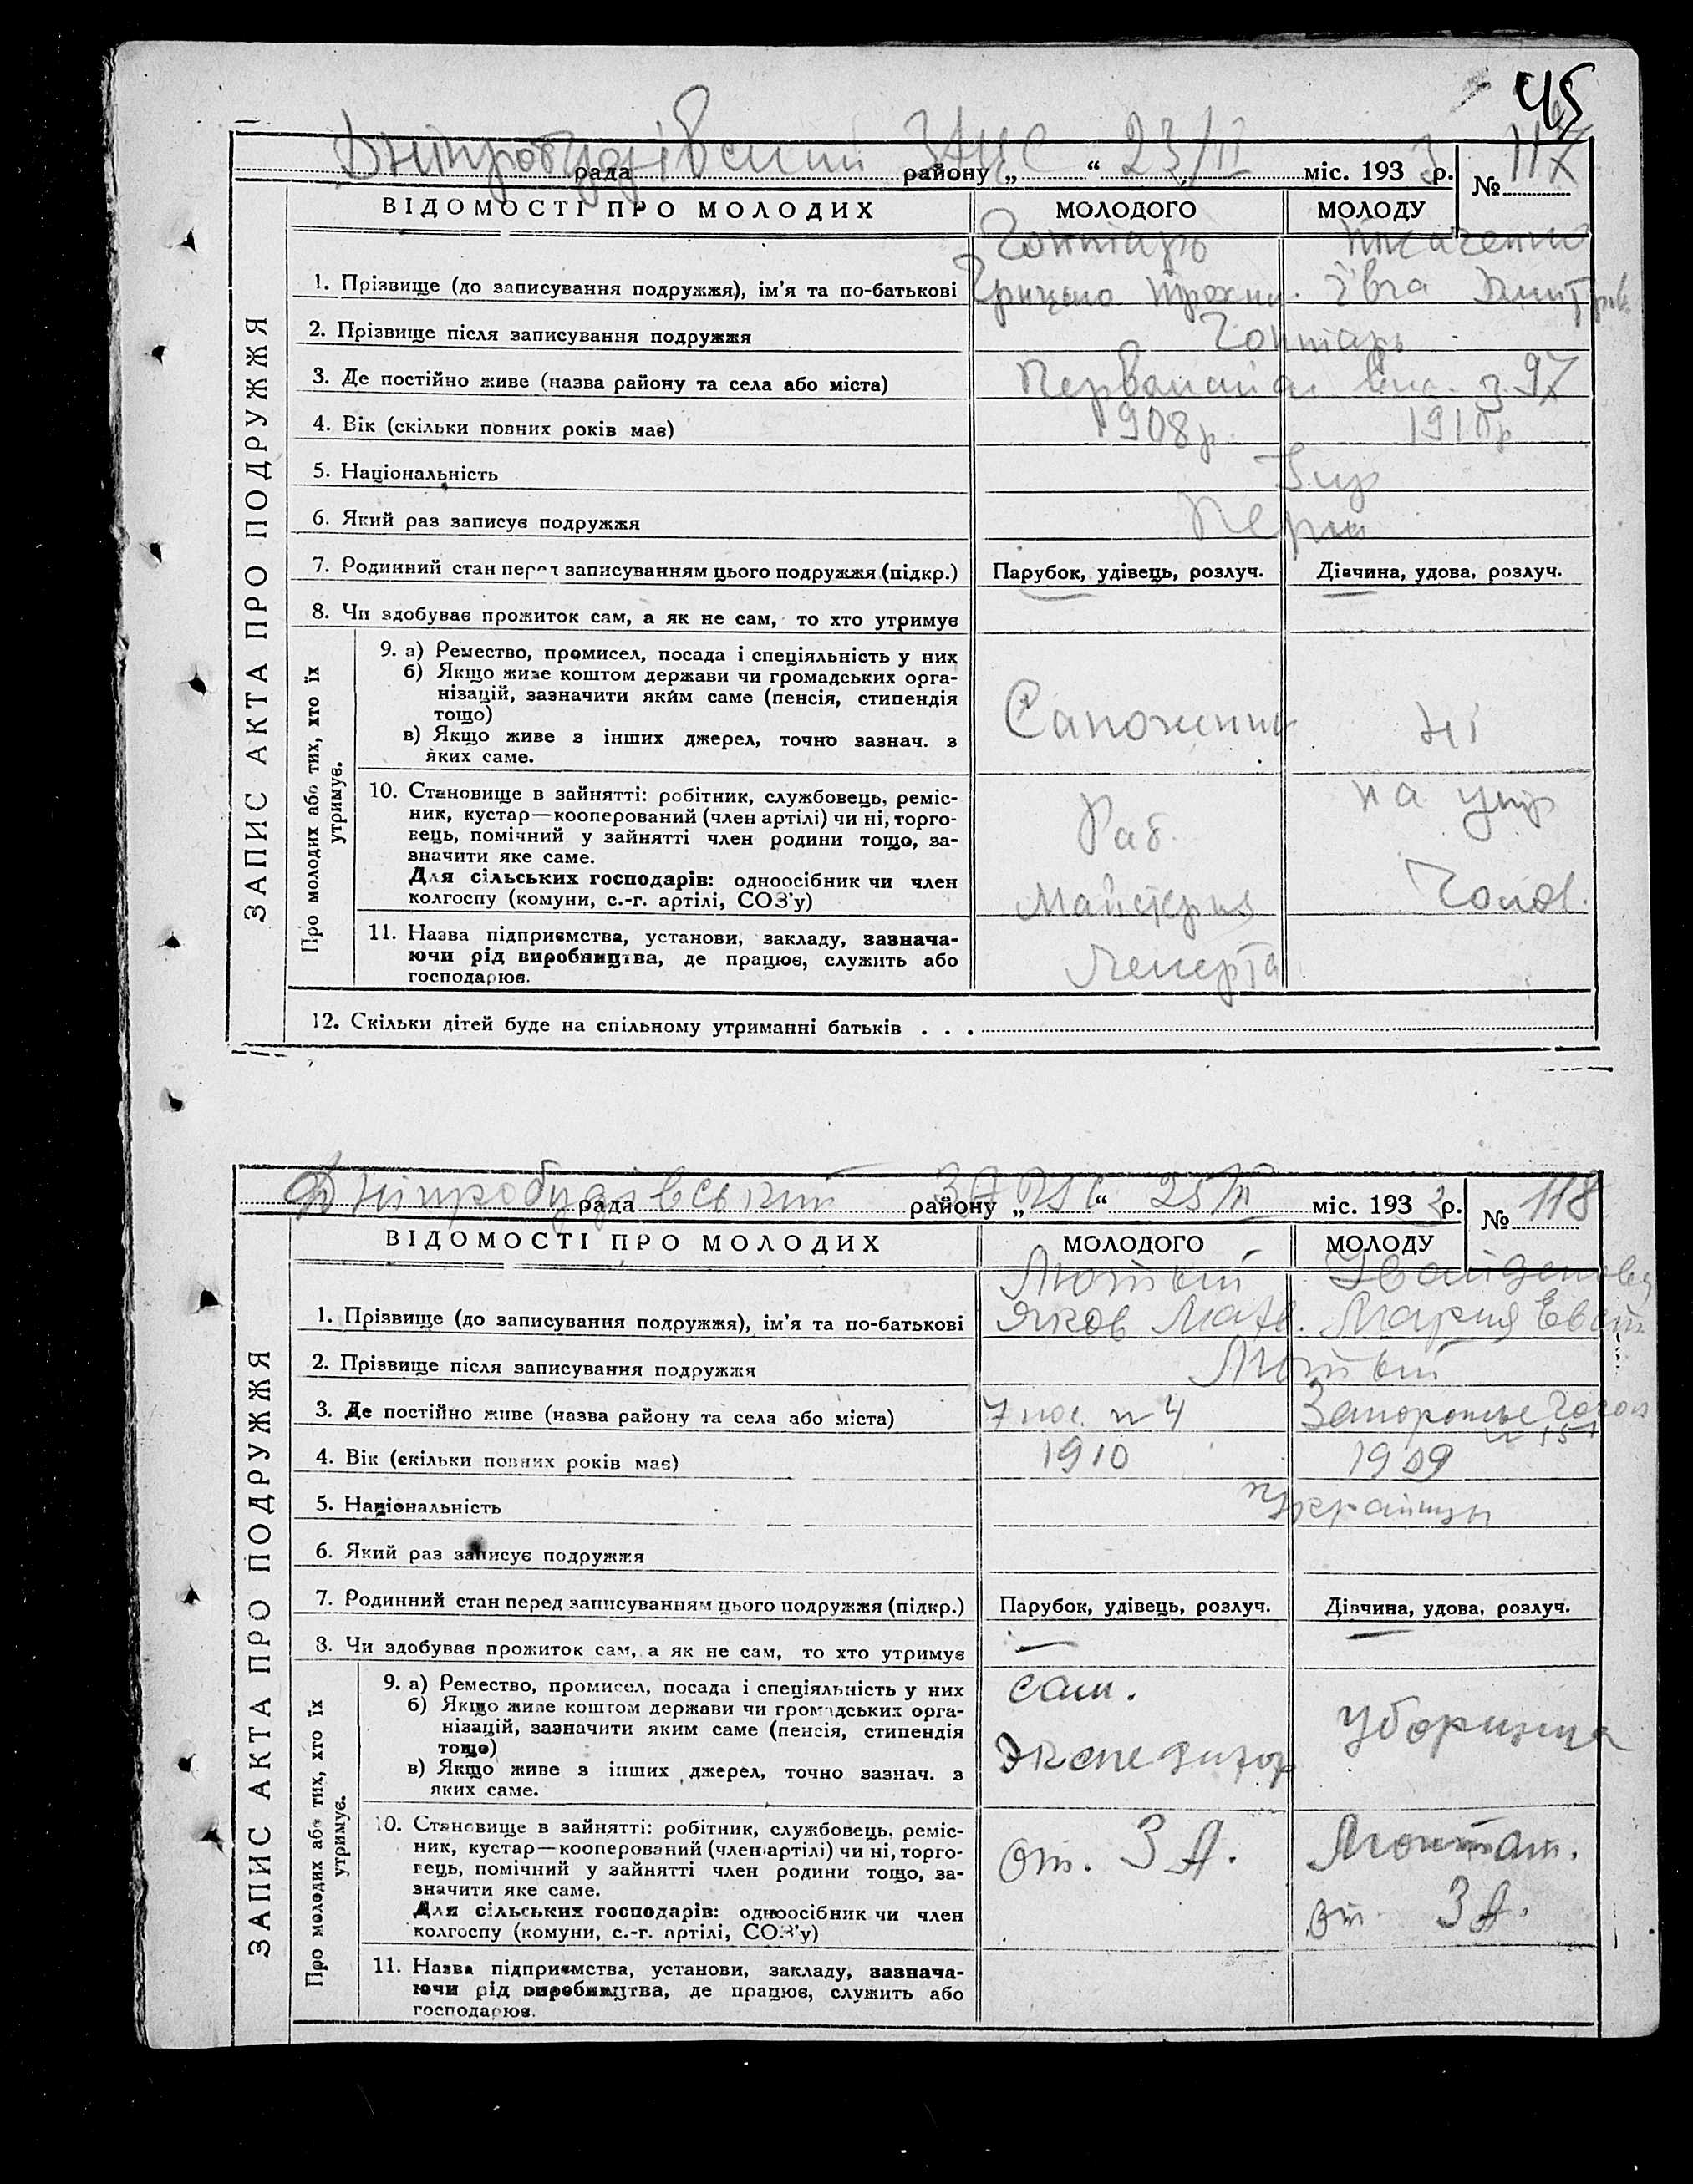 45
Дніпробудівський ЗАГС 23/II
рада району „ “ міс. 1933 р. № 117
ВІДОМОСТІ ПРО МОЛОДИХ МОЛОДОГО МОЛОДУ
Гонтарь Ткаченко
1. Прізвище (до записування подружжя), ім'я та по-батькові Грицько Трохим. Євга Дмитрів
2. Прізвище після записування подружжя Гонтарь
3. Де постійно живе (назва району та села або міста) 97
4. Вік (скільки повних років має) 1908 р. 1910 р
5. Національність Укр
6. Який раз записує подружжя Перш
7. Родинний стан перед записуванням цього подружжя (підкр.) Парубок, удівець, розлуч. Дівчина, удова, розлуч.
8. Чи здобуває прожиток сам, а як не сам, то хто утримує
9. а) Ремество, промисел, посада і спеціяльність у них
б) Якщо живе коштом держави чи громадських орга-
нізацій, зазначити яким саме (пенсія, стипендія
тощо)
в) Якщо живе з інших джерел, точно зазнач. з
яких саме.
Сапожник ні
10. Становище в зайнятті: робітник, службовець, реміс-
ник, кустар—кооперований (член артілі) чи ні, торго-
вець, помічний у зайнятті член родини тощо, за-
значити яке саме.
Для сільських господарів: одноосібник чи член
колгоспу (комуни, с.-г. артілі, СОЗ'у)
Раб. на утр
Чолов.
11. Назва підприємства, установи, закладу, зазнача-
ючи рід виробництва, де працює, служить або
господарює.
Майстерня
12. Скільки дітей буде на спільному утриманні батьків . . .
ЗАПИС АКТА ПРО ПОДРУЖЖЯ
Про молодих або тих, хто їх
утримує.
Дніпробудівський ЗАГС 25/II
рада району „ “ міс. 1933 р. № 118
ВІДОМОСТІ ПРО МОЛОДИХ МОЛОДОГО МОЛОДУ
Лютый
1. Прізвище (до записування подружжя), ім'я та по-батькові Яков Матв. Мария
2. Прізвище після записування подружжя Лютый
3. Де постійно живе (назва району та села або міста) 7 пос. n 4 Запорожье
4. Вік (скільки повних років має) 1910 1909
5. Національність украинцы
6. Який раз записує подружжя
7. Родинний стан перед записуванням цього подружжя (підкр.) Парубок, удівець, розлуч. Дівчина, удова, розлуч.
8. Чи здобуває прожиток сам, а як не сам, то хто утримує
9. а) Ремество, промисел, посада і спеціяльність у них
б) Якщо живе коштом держави чи громадських орга-
нізацій, зазначити яким саме (пенсія, стипендія
тощо)
в) Якщо живе з інших джерел, точно зазнач. з
яких саме.
сам. уборщица
Экспедитор
10. Становище в зайнятті: робітник, службовець, реміс-
ник, кустар—кооперований (член артілі) чи ні, торго-
вець, помічний у зайнятті член родини тощо, за-
значити яке саме.
Для сільських господарів: одноосібник чи член
колгоспу (комуни, с.-г. артілі, СОЗ'у)
от. З А. Монтаж.
от З А.
11. Назва підприємства, установи, закладу, зазнача-
ючи рід виробництва, де працює, служить або
господарює.
ЗАПИС АКТА ПРО ПОДРУЖЖЯ
Про молодих або тих, хто їх
утримує.